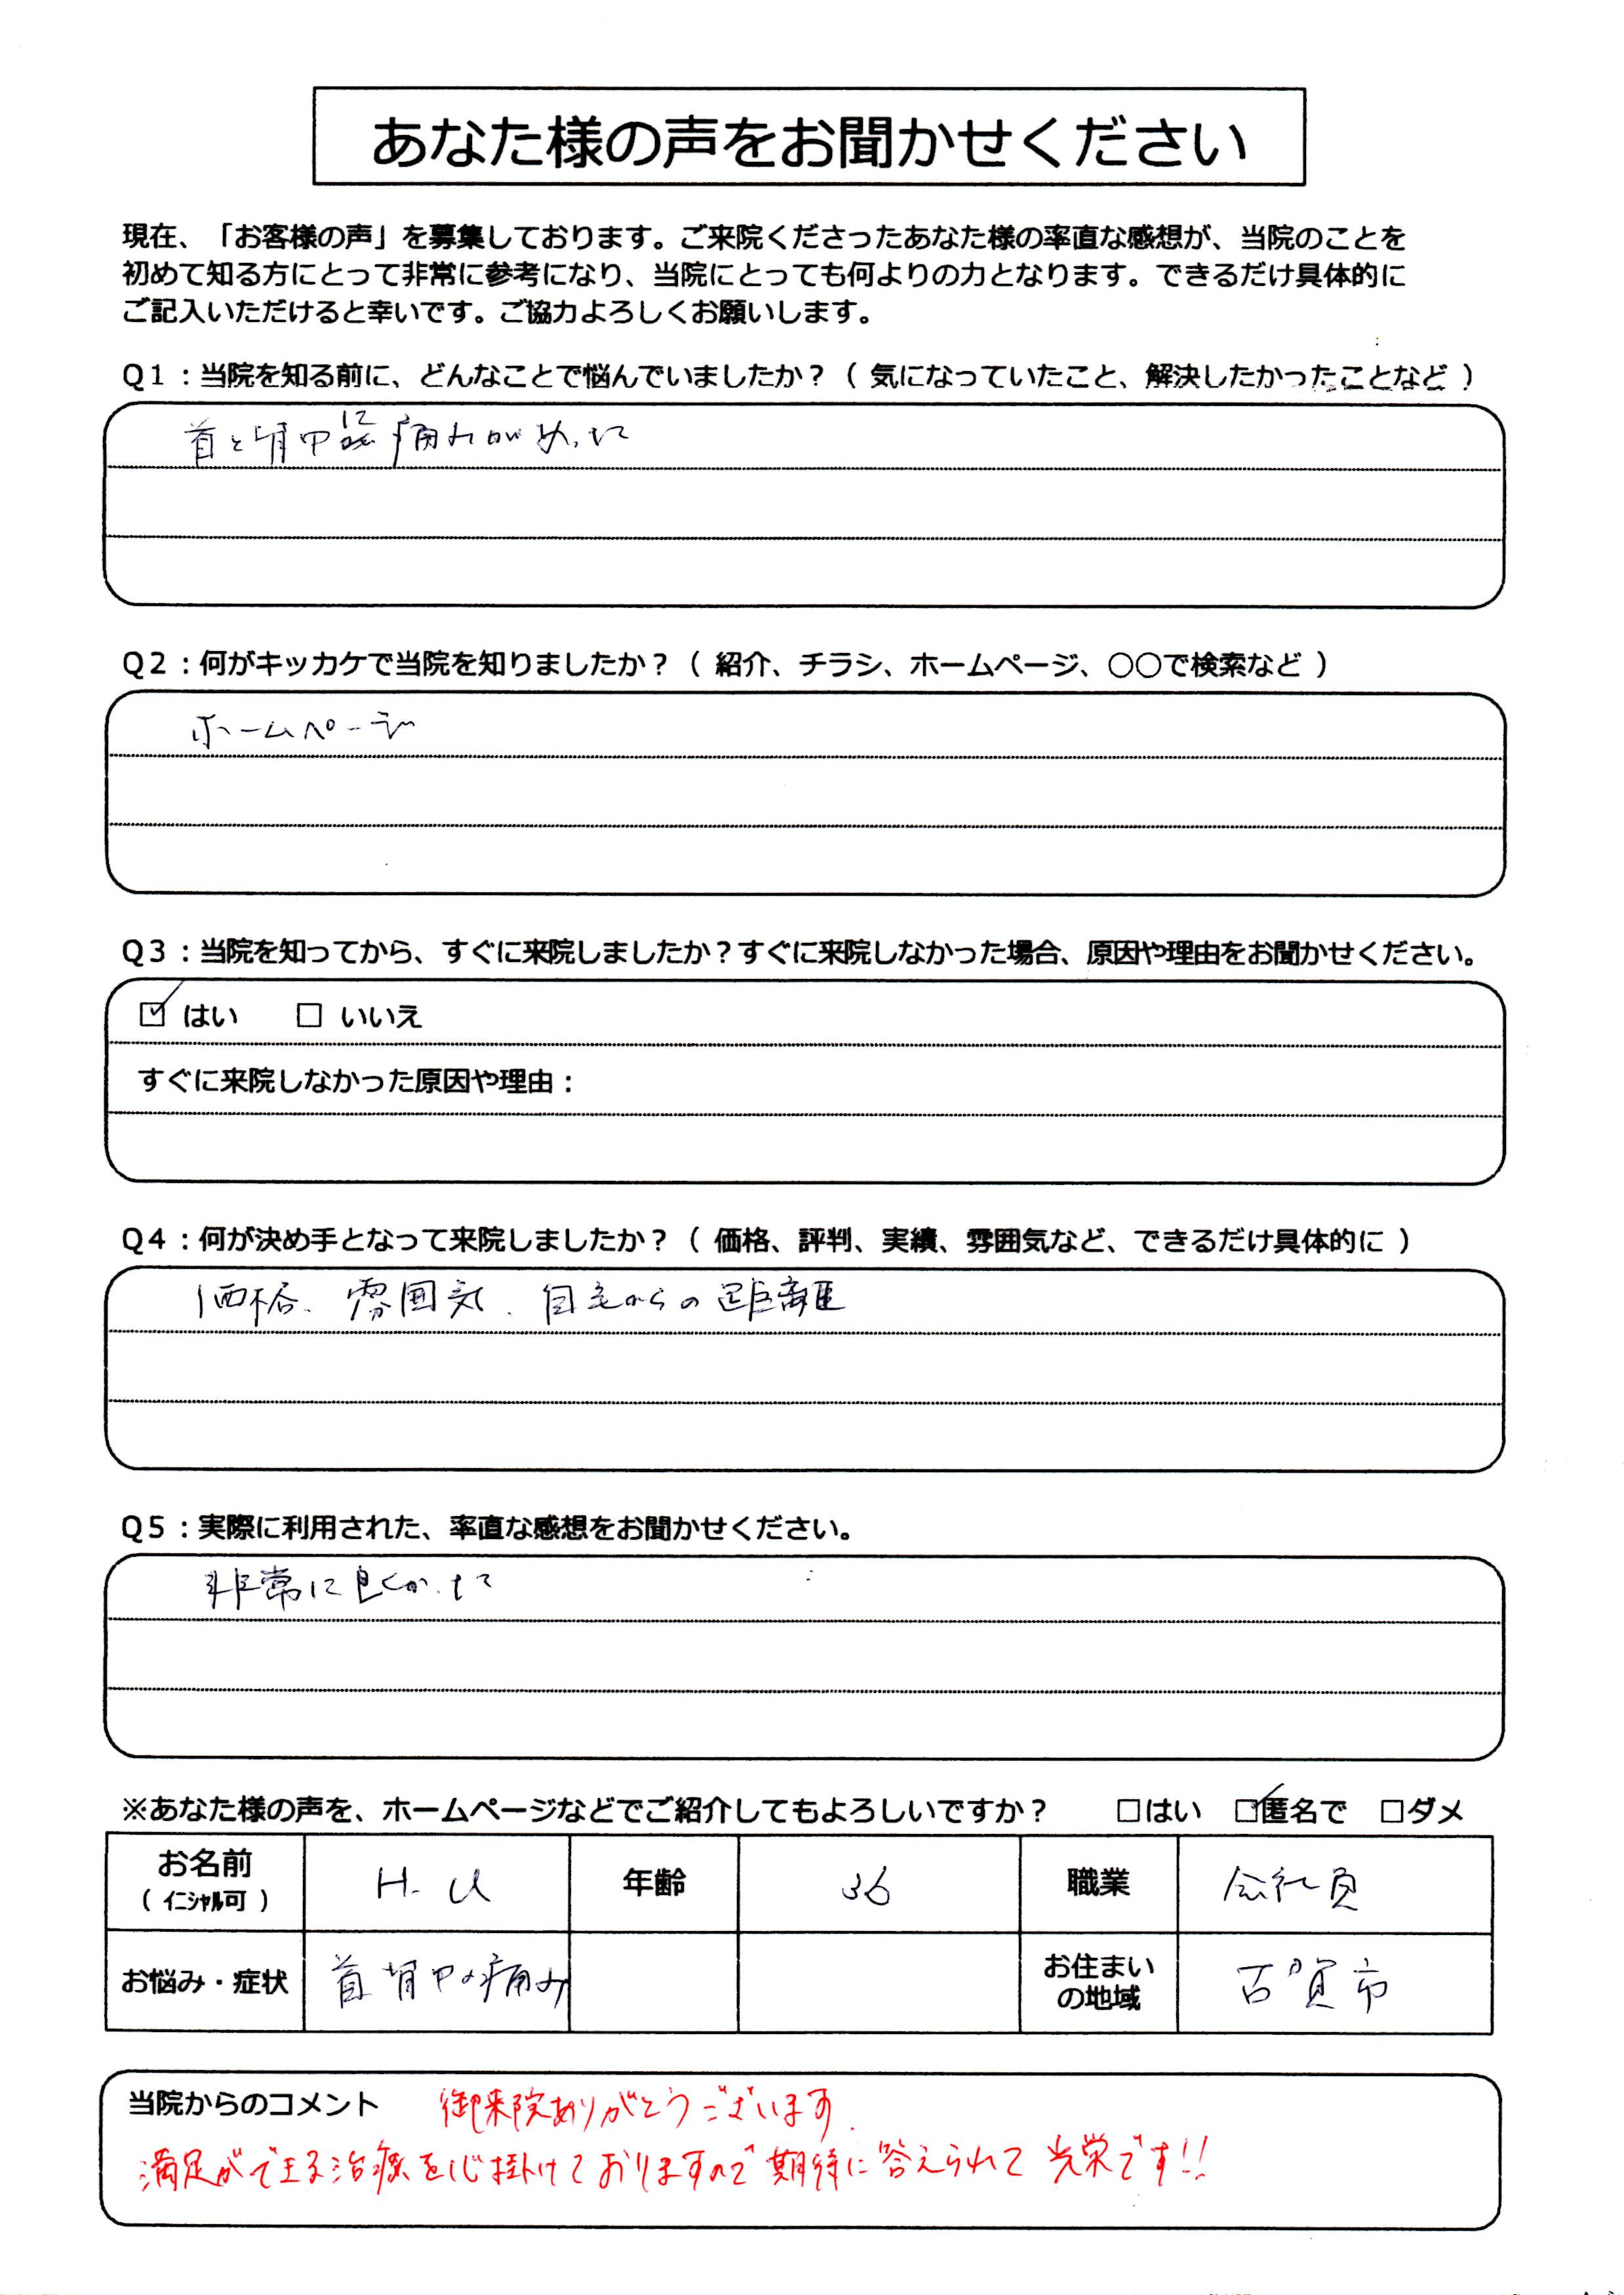 あなた様の声をお聞かせください
現在、「お客様の声」を募集しております。ご来院くださったあなた様の率直な感想が、当院のことを
初めて知る方にとって非常に参考になり、当院にとっても何よりの力となります。できるだけ具体的に
ご記入いただけると幸いです。ご協力よろしくお願いします。
Q1：当院を知る前に、どんなことで悩んでいましたか？（ 気になっていたこと、解決したかったことなど ）
首と背中に痛みがあった
Q2：何がキッカケで当院を知りましたか？（ 紹介、チラシ、ホームページ、○○で検索など ）
ホームページ
Q3：当院を知ってから、すぐに来院しましたか？すぐに来院しなかった場合、原因や理由をお聞かせください。
☑ はい □ いいえ
すぐに来院しなかった原因や理由：
Q4：何が決め手となって来院しましたか？（ 価格、評判、実績、雰囲気など、できるだけ具体的に ）
価格、雰囲気、自宅からの距離
Q5：実際に利用された、率直な感想をお聞かせください。
非常に良かった
※あなた様の声を、ホームページなどでご紹介してもよろしいですか？ □はい ☑匿名で □ダメ
お名前 H.U 年齢 36 職業 会社員
（ ｲﾆｼｬﾙ可 ）
お悩み・症状 首背中の痛み お住まいの地域 古賀市
当院からのコメント 御来院ありがとうございます。
満足ができる治療を心掛けておりますので期待に答えられて光栄です!!